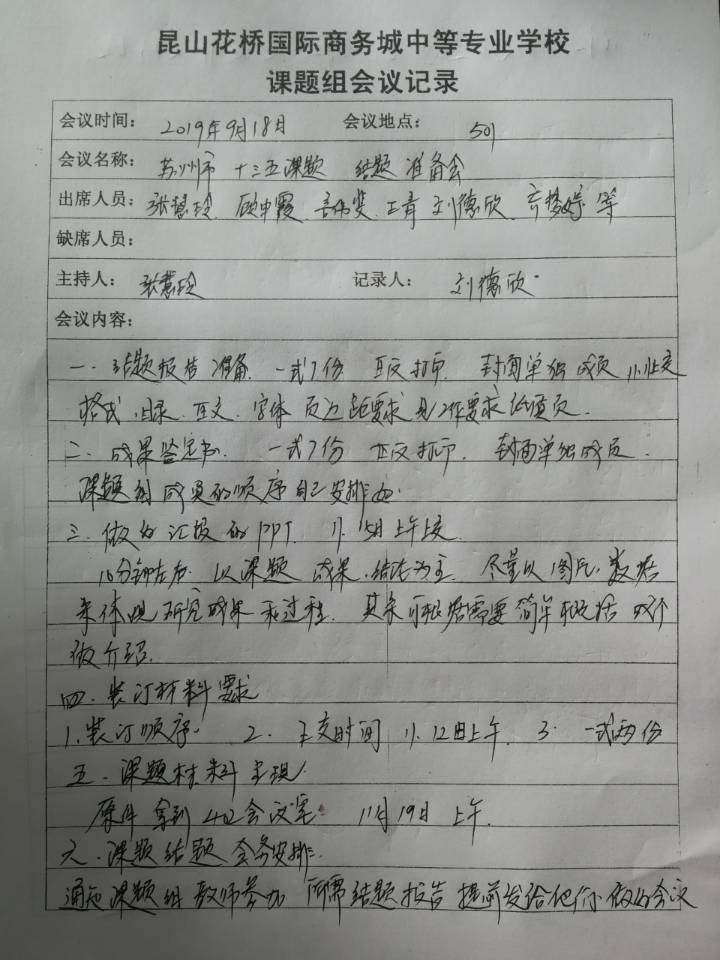 昆山花桥国际商务城中等专业学校
课题组会议记录
会议时间： 2019年9月18日 会议地点： 501
会议名称： 苏州市十三五课题 结题 准备会
出席人员： 张慧玲 顾申霞 王青 刘德欣 齐梦婷 等
缺席人员：
主持人： 张慧玲 记录人： 刘德欣
会议内容：
一. 结题报告 准备. 一式7份 正反打印. 封面单独成页
格式. 目录. 正文. 字体 页边距要求 见
二. 成果鉴定书. 一式7份 正反打印. 封面单独成页.
课题组成员的顺序自己安排好.
三. 做好汇报的PPT. 11.15日上午上交
10分钟左右. 以课题 成果.结论为主. 尽量以图片.数据
来体现 研究成果和过程. 其余可根据需要 简单概括
做介绍.
四. 装订材料要求
1.装订顺序. 2. 上交时间 11.12日上午. 3. 一式两份
五. 课题材料呈现.
原件 拿到 402会议室. 11月19日 上午.
六. 课题结题 会务安排.
通知课题组教师参加 所需结题报告 提前发给他们 做好会议